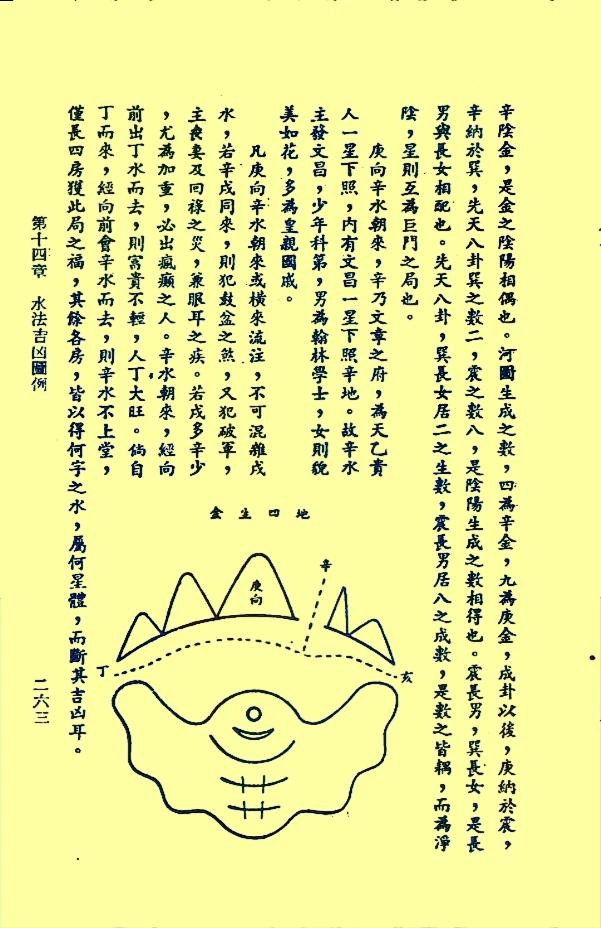 辛陰金，是金之陰陽相偶也。河圖生成之數，四為辛金，九為庚金，成卦以後，庚納於震，
辛納於巽，先天八卦巽之數二，震之數八，是陰陽生成之數相得也。震長男，巽長女，是長
男與長女相配也。先天八卦，巽長女居二之生數，震長男居八之成數，是數之皆耦，而為淨
陰，星則互為巨門之局也。
庚向辛水朝來，辛乃文章之府，為天乙貴
人一星下照，內有文昌一星下照辛地。故辛水
主發文昌，少年科第，男為翰林學士，女則貌
美如花，多為皇親國戚。
凡庚向辛水朝來或橫來流注，不可混雜戌
水，若辛戌同來，則犯鼓盆之煞，又犯破軍，
主喪妻及回祿之災，兼眼耳之疾。若戌多辛少
，尤為加重，必出瘋癲之人。辛水朝來，經向
前出丁水而去，則富貴不輕，人丁大旺。倘自
丁而來，經向前會辛水而去，則辛水不上堂，
僅長四房獲此局之福，其餘各房，皆以得何字之水，屬何星體，而斷其吉凶耳。
地四生金
庚向
辛
丁
亥
第十四章 水法吉凶圖例
二六三